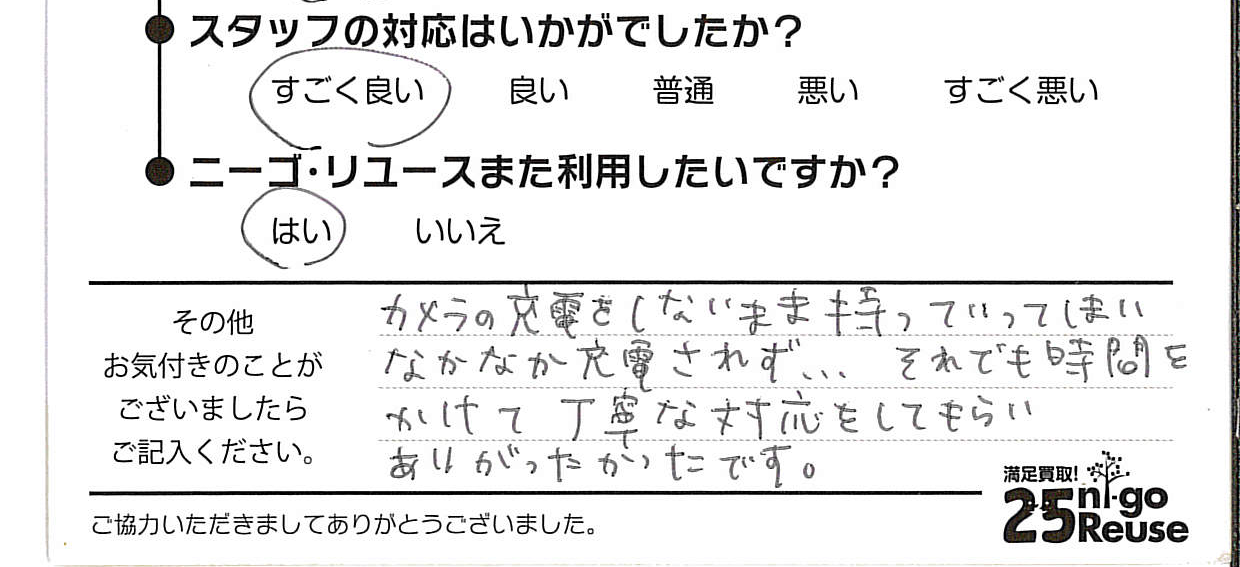 スタッフの対応はいかがでしたか?
すごく良い 良い 普通 悪い すごく悪い
ニーゴ・リユースまた利用したいですか?
はい いいえ
その他
お気付きのことが
ございましたら
ご記入ください。
カメラの充電をしないまま持っていってしまい
なかなか充電されず... それでも時間を
かけて丁寧な対応をしてもらい
ありがったかったです。
満足買取!
25 ni-go
Reuse
ご協力いただきましてありがとうございました。